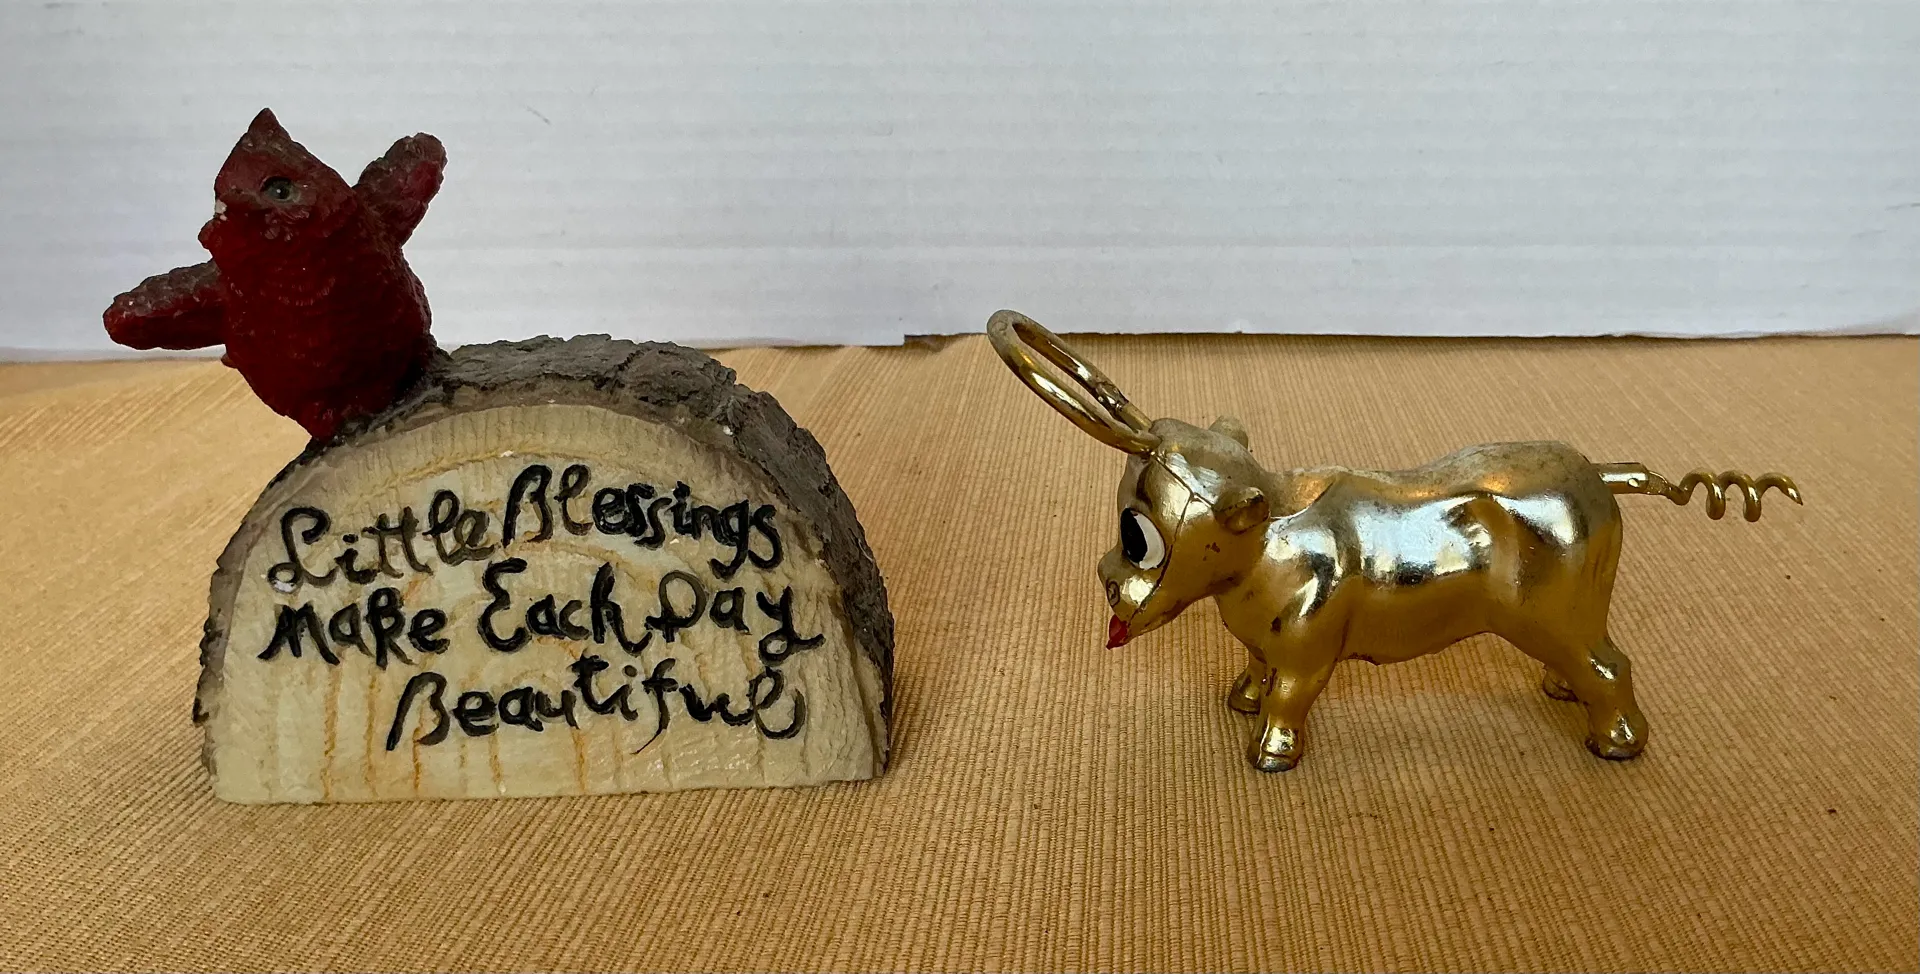 Little Blessings
Make Each Day
Beautiful